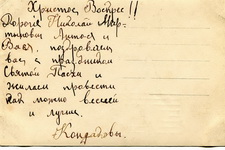 Христос Воскрес!!
Дорогие Николай Мар-
тынович Антося и
Вася, поздравляем
вас с праздником
Святой Пасхи и
желаем провести
как можно веселей
и лучше.
Кондадовы.